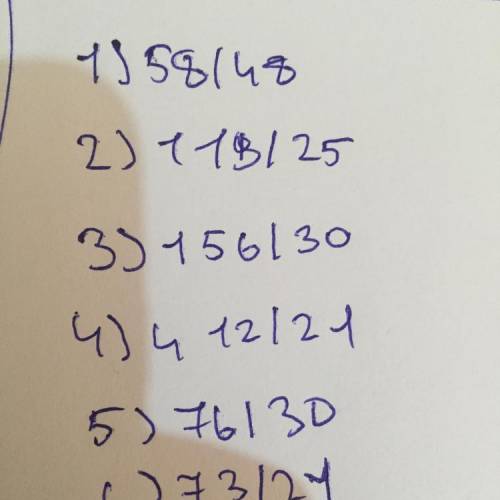 1) 58/48
2) 113/25
3) 156/30
4) 4 12/21
5) 76/30
) 73/21